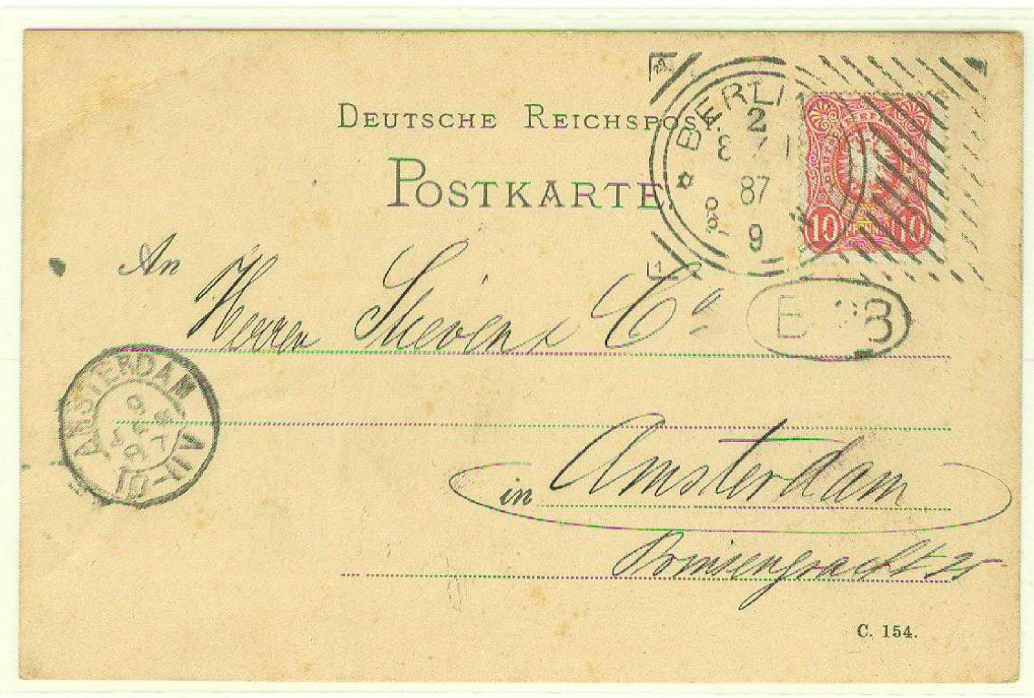 DEUTSCHE REICHSPOST.
POSTKARTE.
BERLIN
2
8 7 1
87
9
10 10
An
Herren Stieven & Co
AMSTERDAM
VII-III
in Amsterdam
Prinsengracht 25
C. 154.